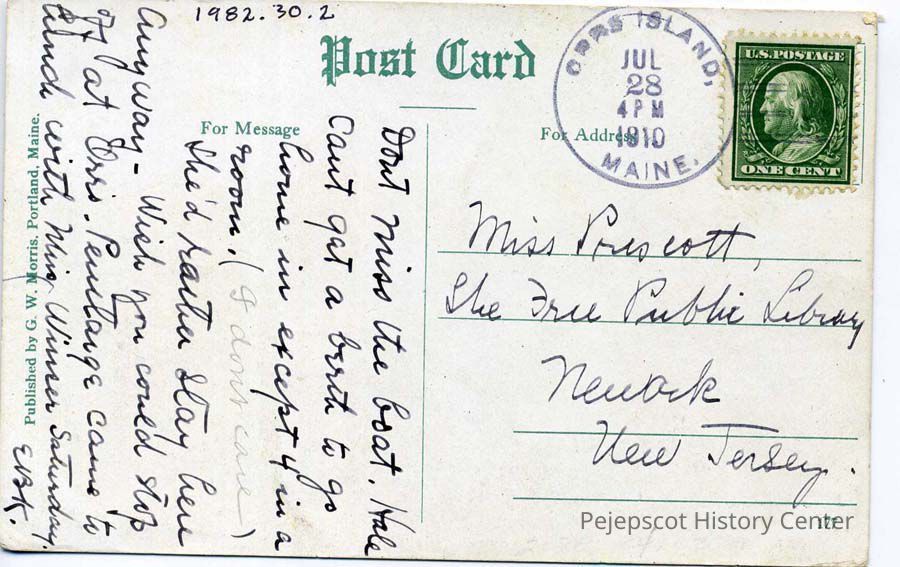 1982.30.2
Post Card
For Message
For Address
ORRS ISLAND,
JUL
28
4 PM
1910
MAINE.
U.S. POSTAGE
ONE CENT
Dont miss the boat. Hale
Cant get a berth to go
home in except 4 in a
room. (I dont care)
She'd rather stay here
anyway - Wish you could stop
off at Orrs. Penlarge came to
lunch with Miss Winser Saturday.
EBK.
Miss Prescott,
The Free Public Library
Newark
New Jersey.
Published by G. W. Morris, Portland, Maine.
Pejepscot History Center